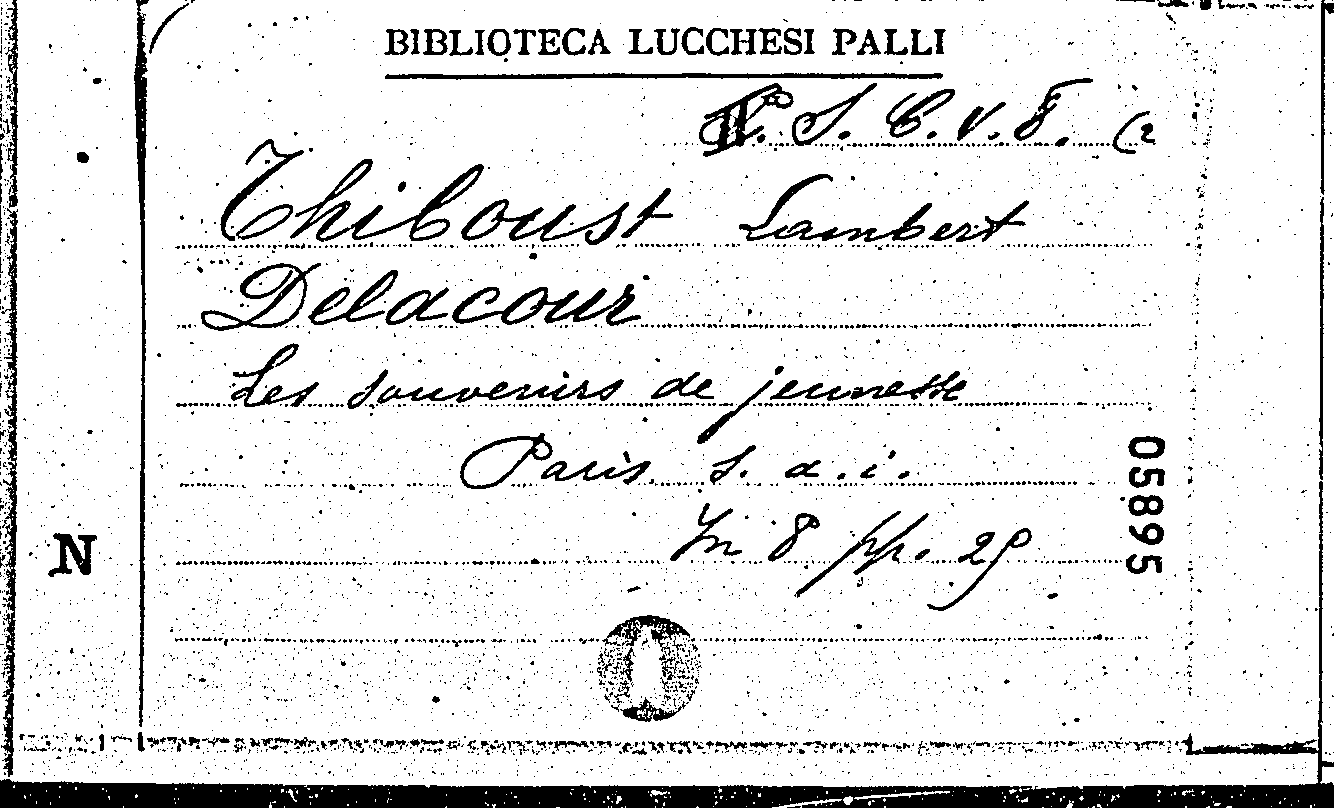 BIBLIOTECA LUCCHESI PALLI
S. C. v. 8. (2
Thiboust Lambert
Delacour
Les souvenirs de jeunesse
Paris s. a. i.
In 8 pp. 29
05895
N